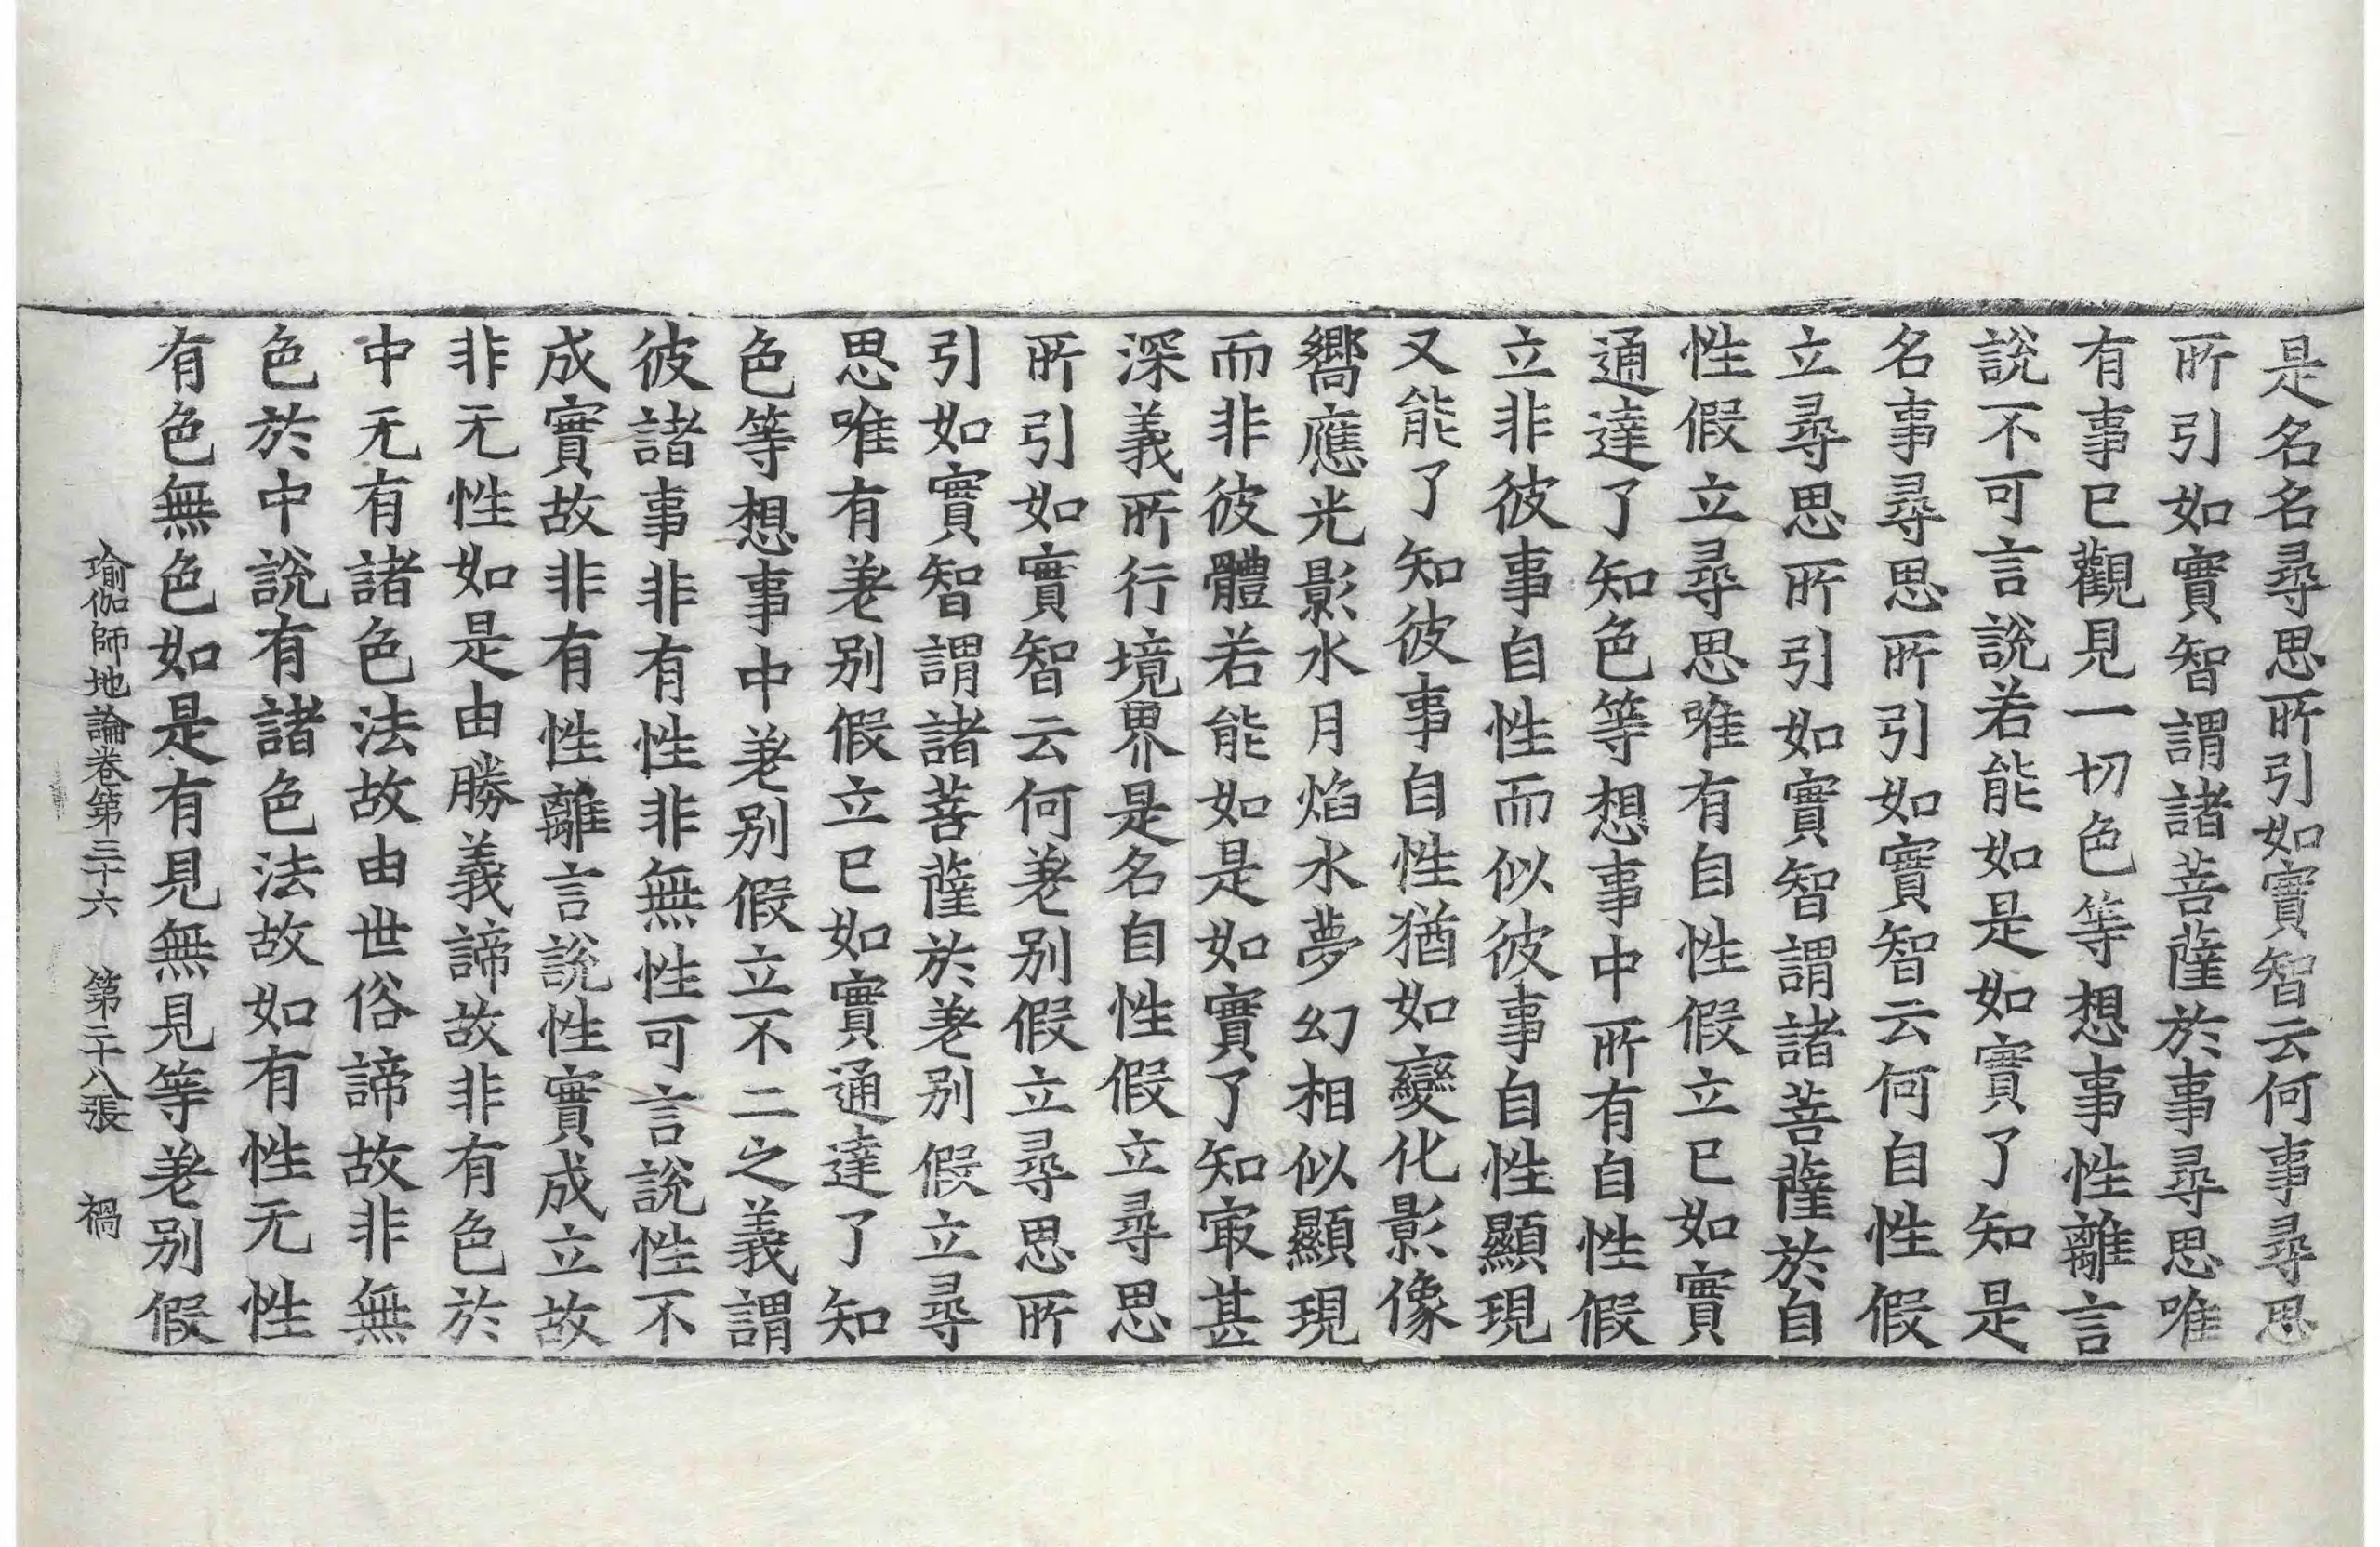 是名名尋思所引如實智云何事尋思
所引如實智謂諸菩薩於事尋思唯
有事已觀見一切色等想事性離言
說不可言說若能如是如實了知是
名事尋思所引如實智云何自性假
立尋思所引如實智謂諸菩薩於自
性假立尋思唯有自性假立已如實
通達了知色等想事中所有自性假
立非彼事自性而似彼事自性顯現
又能了知彼事自性猶如變化影像
嚮應光影水月焰水夢幻相似顯現
而非彼體若能如是如實了知㝡甚
深義所行境界是名自性假立尋思
所引如實智云何差別假立尋思所
引如實智謂諸菩薩於差別假立尋
思唯有差別假立已如實通達了知
色等想事中差別假立不二之義謂
彼諸事非有性非無性可言說性不
成實故非有性離言說性實成立故
非无性如是由勝義諦故非有色於
中无有諸色法故由世俗諦故非無
色於中說有諸色法故如有性无性
有色無色如是有見無見等差別假
瑜伽師地論卷第三十六 第二十八張 禍